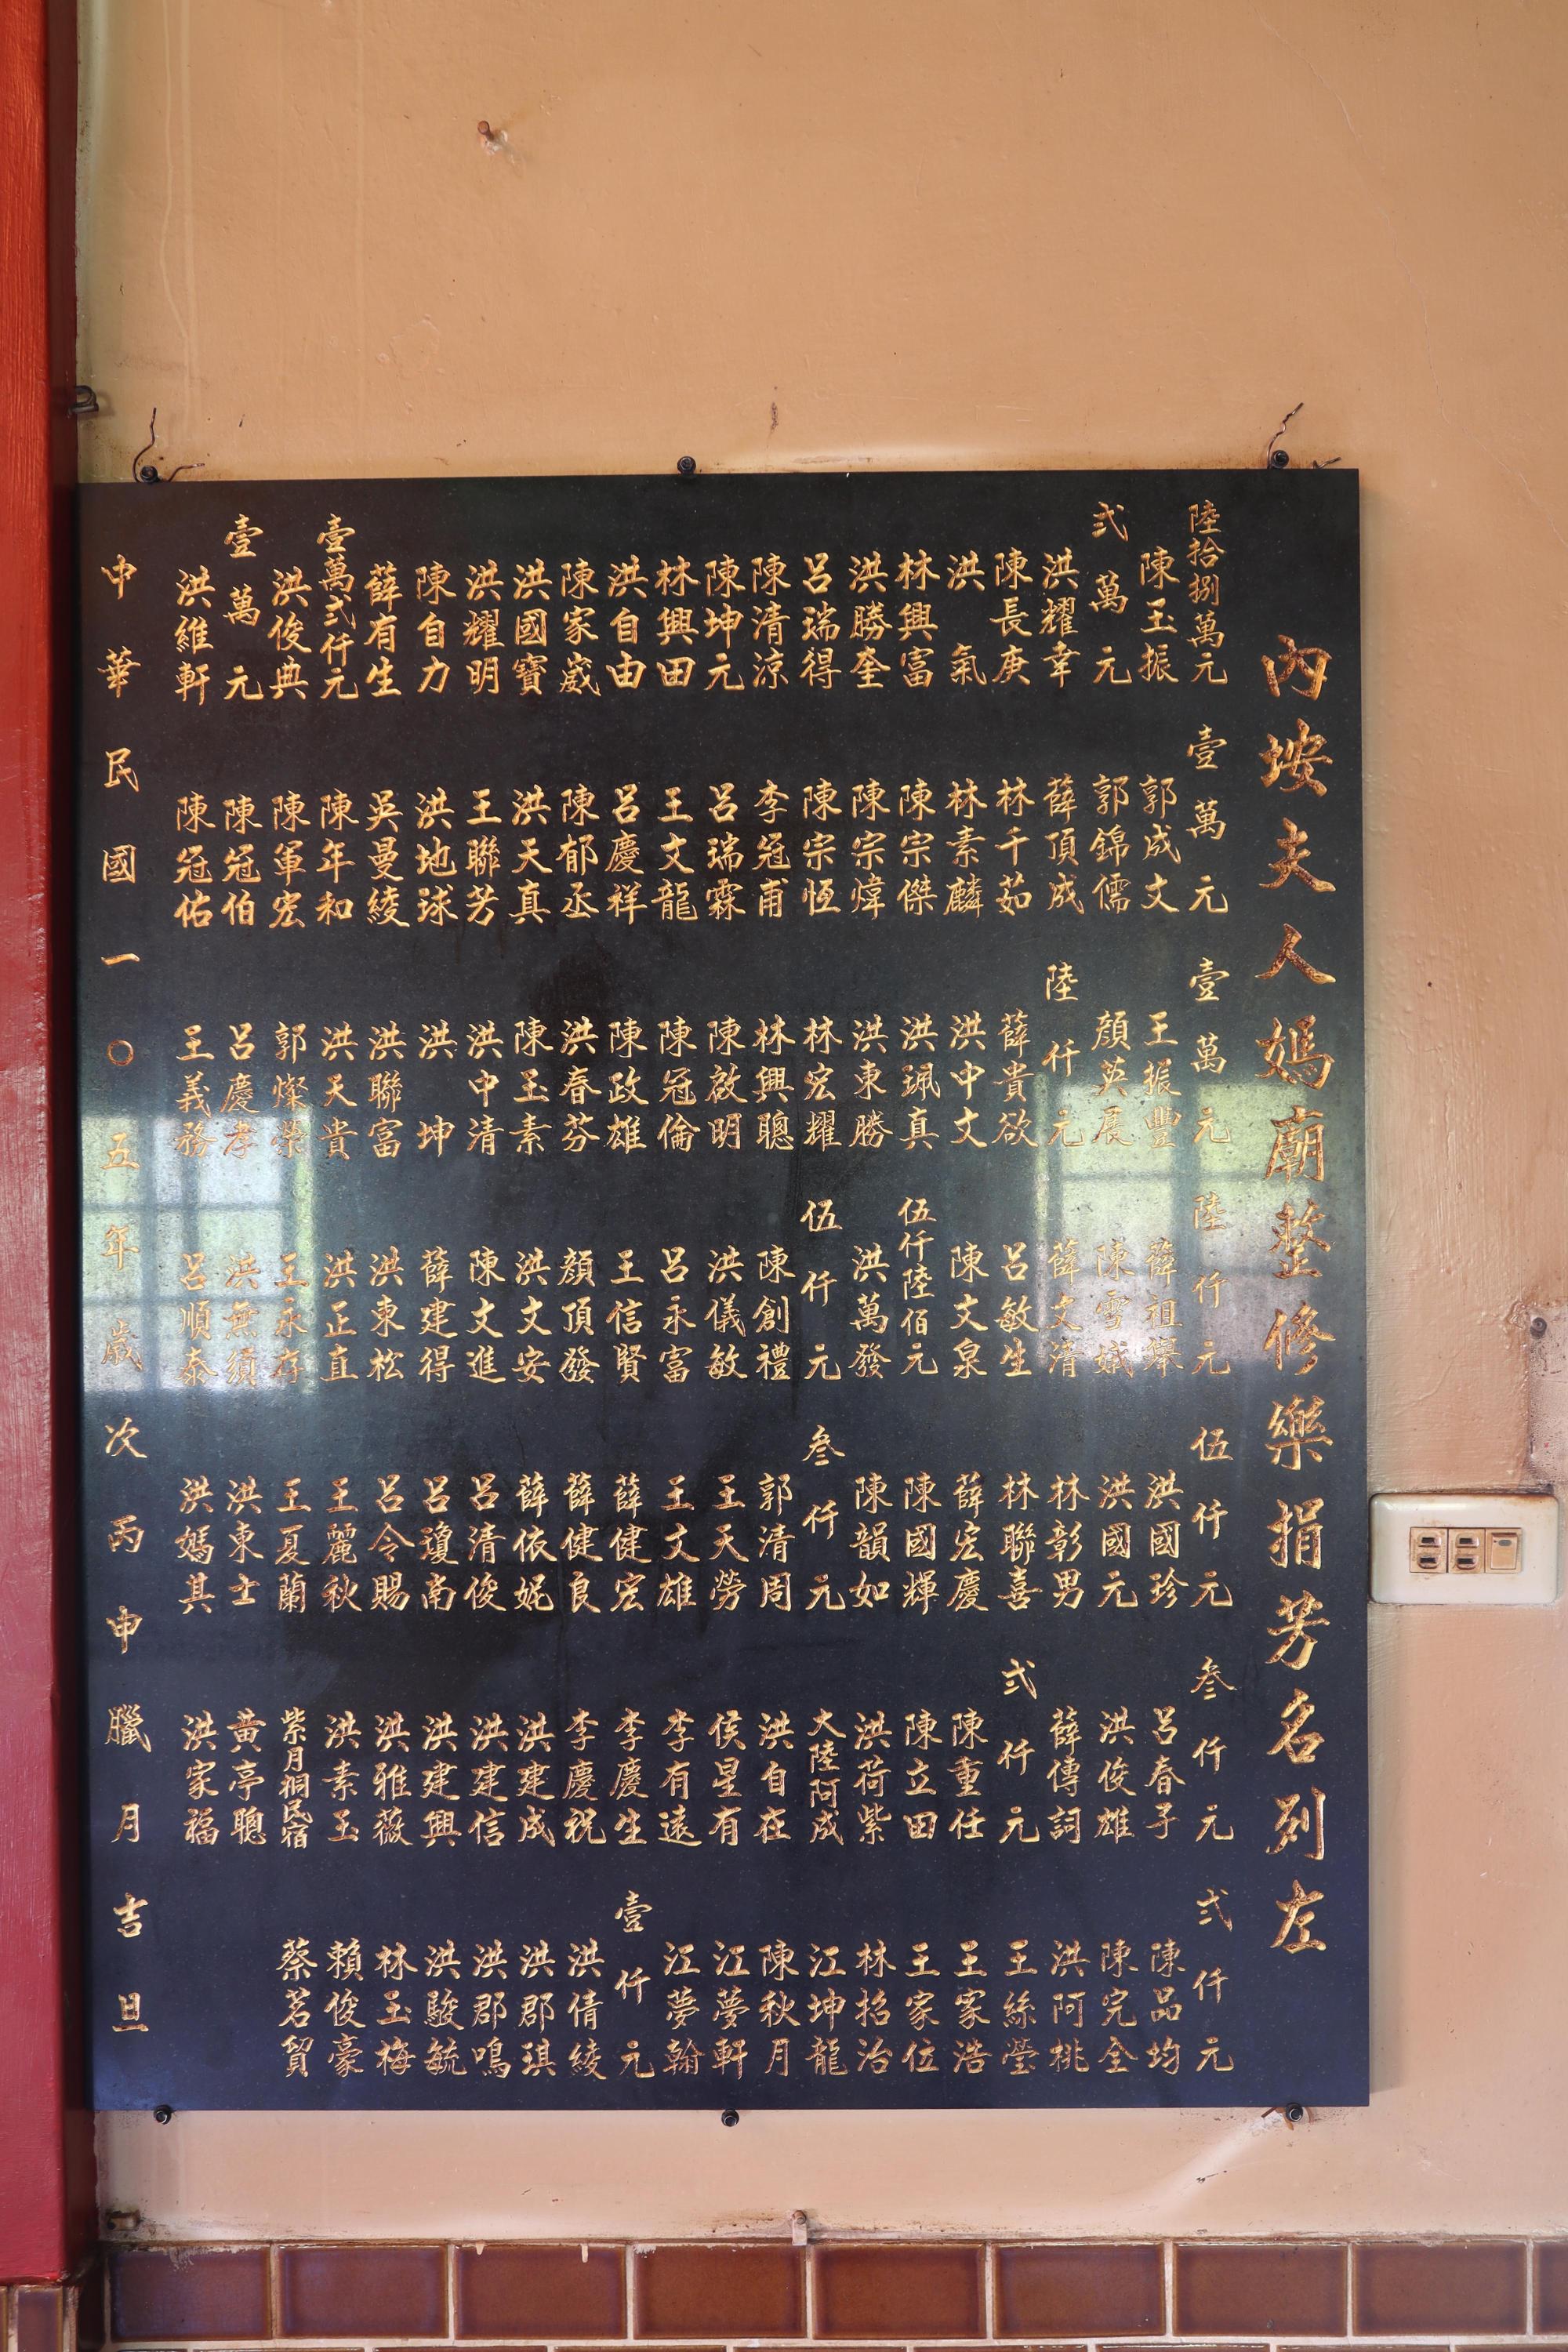 內垵夫人媽廟整修樂捐芳名列左
陸拾捌萬元
陳玉振
弍萬元
洪耀幸
陳長庚
洪氣
林興富
洪勝奎
呂瑞得
陳清涼
陳坤元
林興田
洪自由
陳家崴
洪國寶
洪耀明
陳自力
薛有生
壹萬弍仟元
洪俊典
壹萬元
洪維軒
壹萬元
郭成文
郭錦儒
薛頂成
林千茹
林素麟
陳宗傑
陳宗煒
陳宗恆
李冠甫
呂瑞霖
王文龍
呂慶祥
陳郁丞
洪天真
王聯芳
洪地球
吳曼綾
陳年和
陳軍宏
陳冠伯
陳冠佑
壹萬元
王振豐
顏英展
陸仟元
薛貴欲
洪中文
洪珮真
洪東勝
林宏耀
林興聰
陳啟明
陳冠倫
陳政雄
洪春芬
陳玉素
洪中清
洪坤
洪聯富
洪天貴
郭燦榮
呂慶孝
王義務
陸仟元
薛祖舉
陳雪娥
薛文清
呂敏生
陳文泉
伍仟陸佰元
洪萬發
伍仟元
陳創禮
洪儀敏
呂永富
王信賢
顏頂發
洪文安
陳文進
薛建得
洪東松
洪正直
王永存
洪無須
呂順泰
伍仟元
洪國珍
洪國元
林彰男
林聯喜
薛宏慶
陳國輝
陳韻如
叁仟元
郭清周
王天勞
王文雄
薛健宏
薛健良
薛依妮
呂清俊
呂瓊南
呂令賜
王麗秋
王夏蘭
洪東士
洪媽其
叁仟元
呂春子
洪俊雄
薛傳詞
弍仟元
陳重任
陳立田
洪荷紫
大陸阿成
洪自在
侯星有
李有遠
李慶生
李慶祝
洪建成
洪建信
洪建興
洪雅薇
洪素玉
紫月桐民宿
黄亭聰
洪家福
弍仟元
陳品均
陳完全
洪阿桃
王絲瑩
王家浩
王家位
林招治
江坤龍
陳秋月
江夢軒
江夢翰
壹仟元
洪倩綾
洪郡琪
洪郡鳴
洪駿毓
林玉梅
賴俊豪
蔡茗貿
中華民國一〇五年歲次丙申臘月吉旦